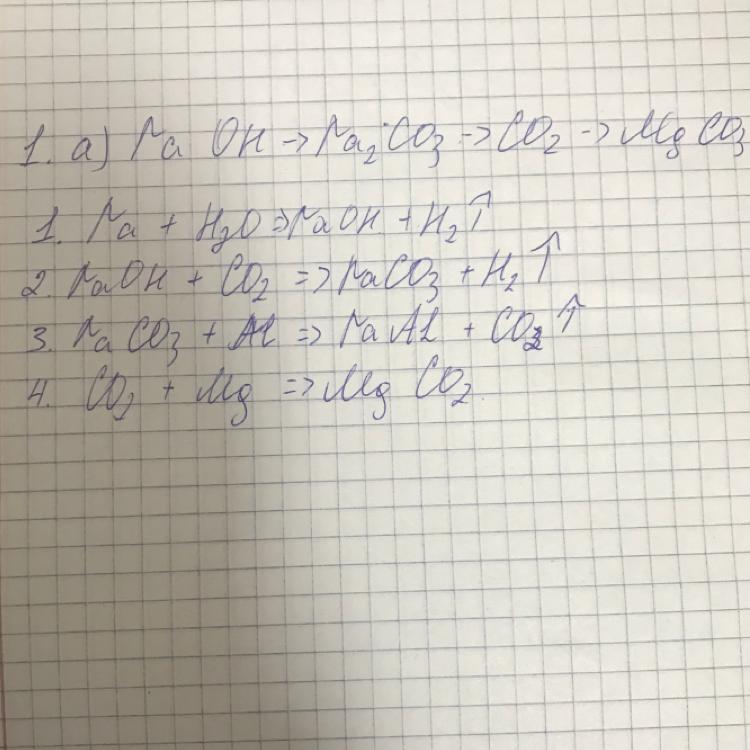 1. a) Na OH → Na₂CO₃ → CO₂ → MgCO₃
1. Na + H₂O => NaOH + H₂↑
2. NaOH + CO₂ => NaCO₃ + H₂↑
3. NaCO₃ + Al => NaAl + CO₂↑
4. CO₂ + Mg => MgCO₂